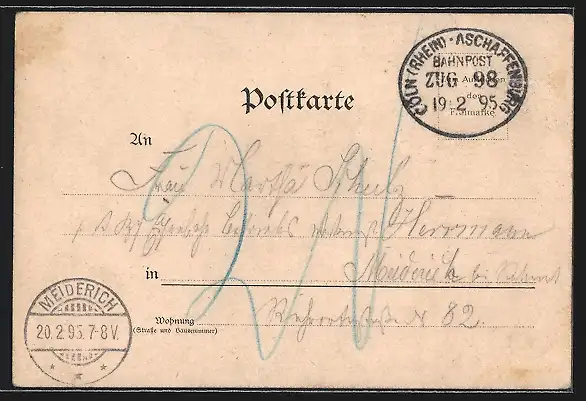 CÖLN (RHEIN) - ASCHAFFENBURG
BAHNPOST
ZUG 98
19 2 95
Zum Aufkleben
der
Freimarke
Postkarte
An
Frau Martha Schulz
Herrmann
in
Meiderich bei
Wohnung
(Straße und Hausnummer)
N 82
MEIDERICH
20.2.95.7-8V.